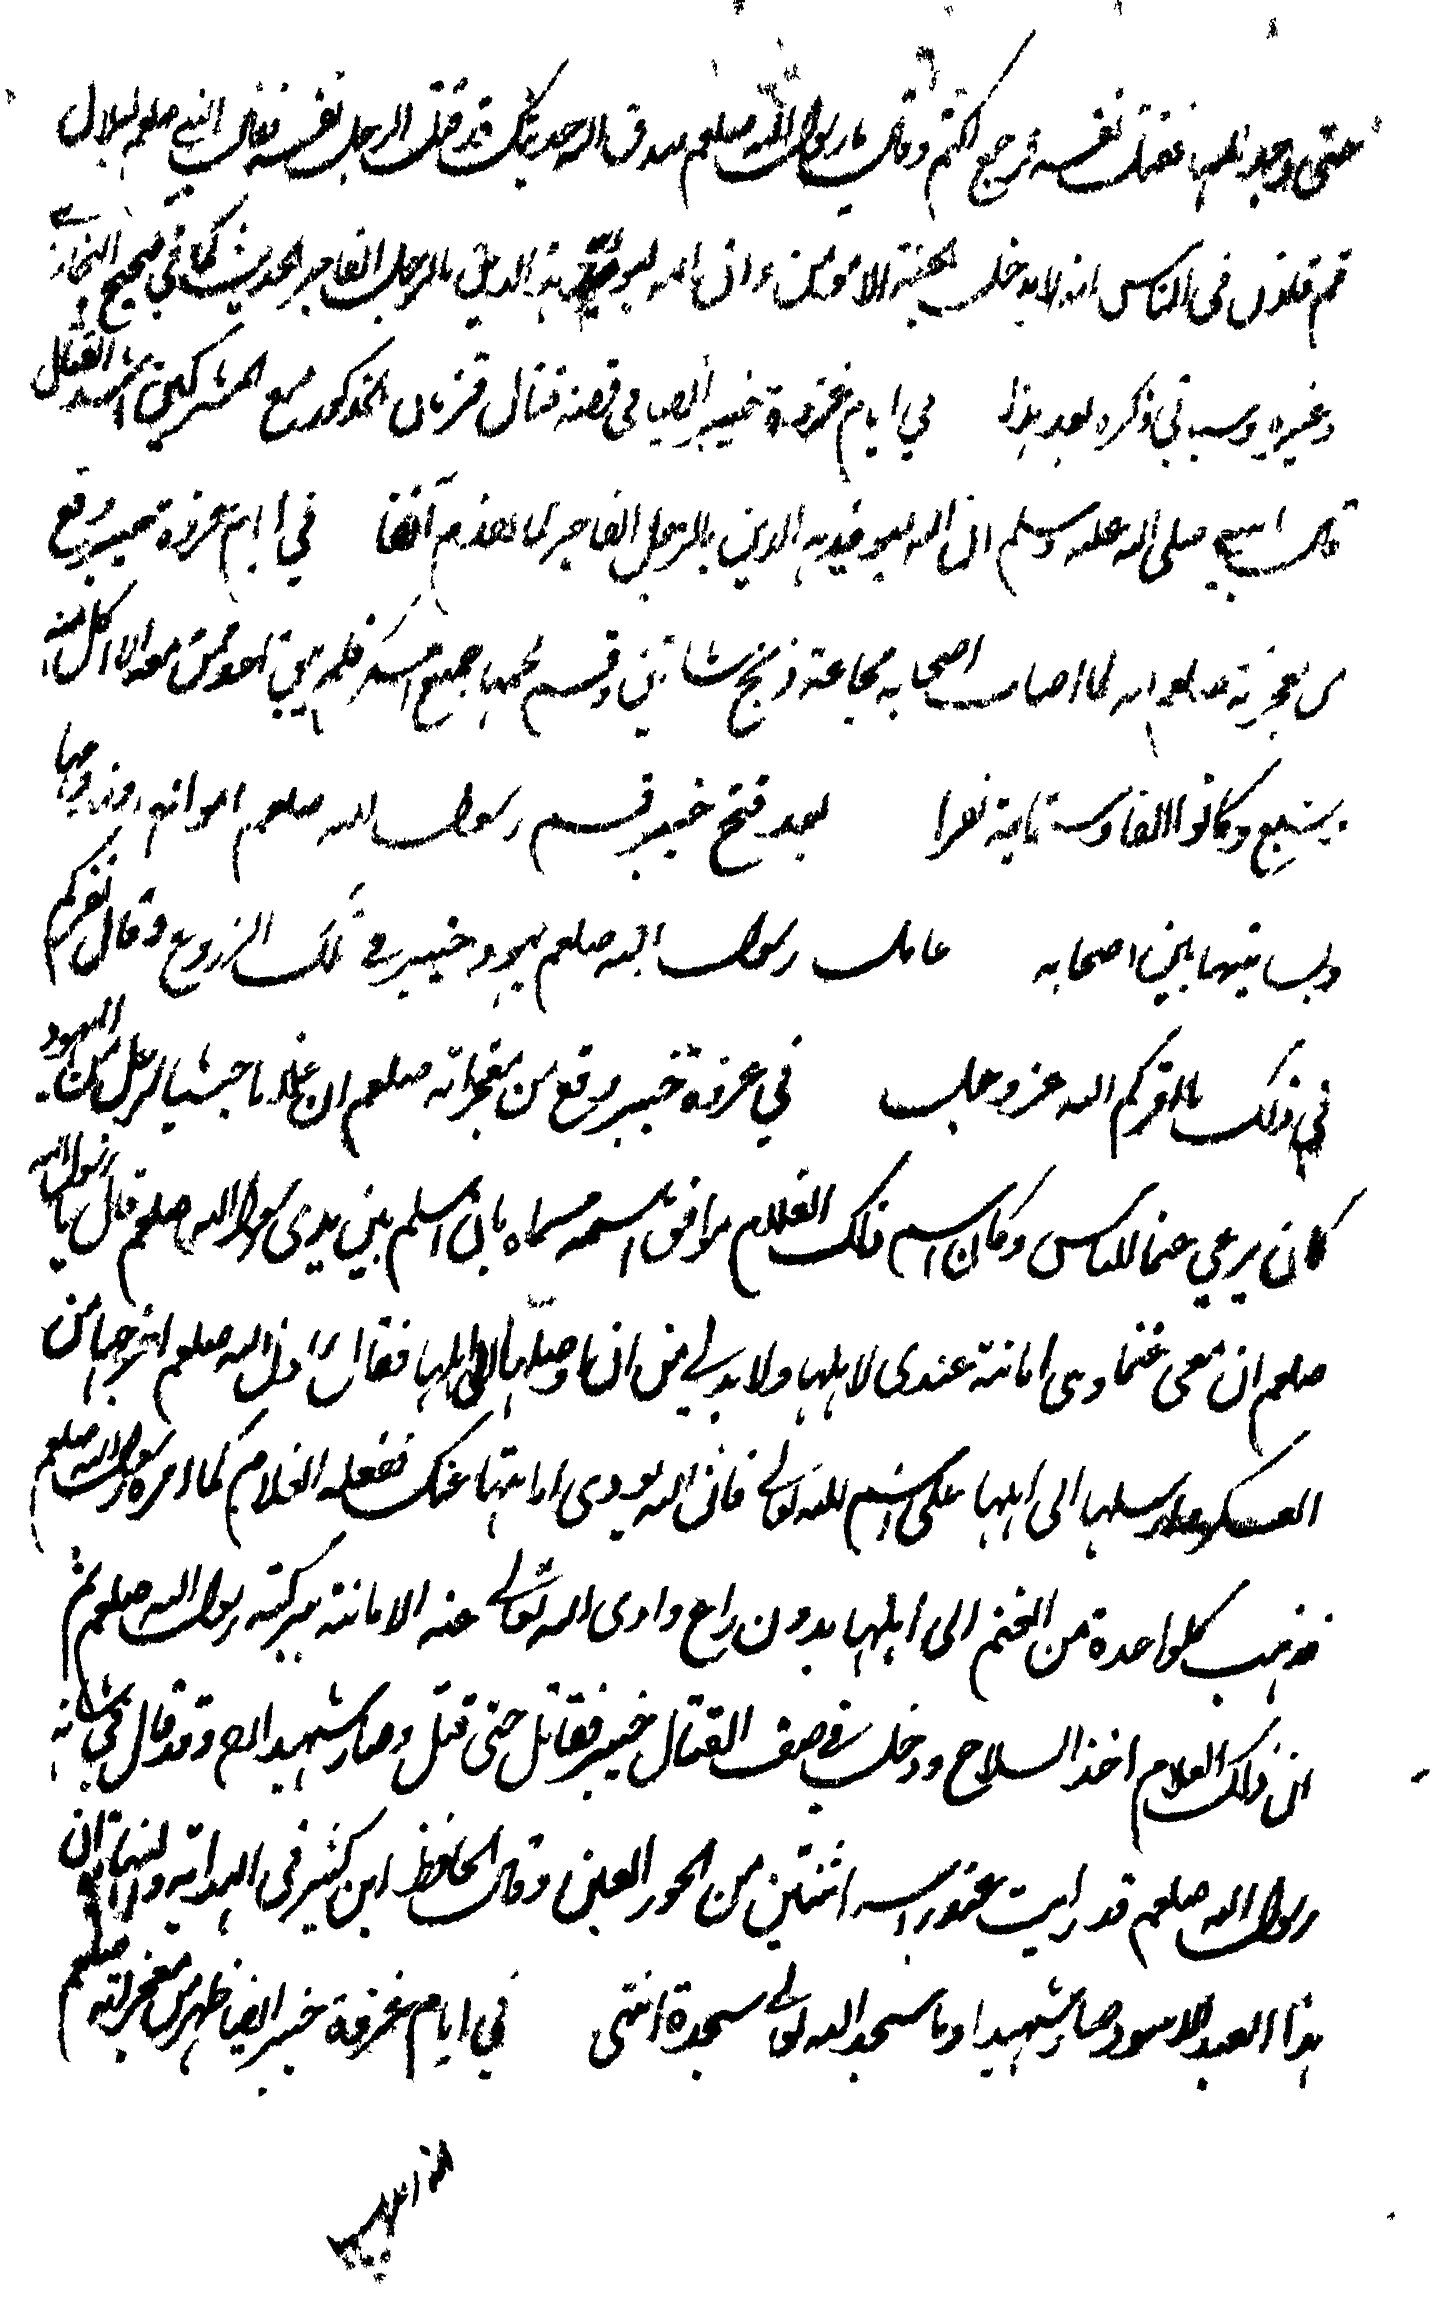 حتى وجد بها فقتل نفسه فرجع اكثم وقال يا رسول الله صلعم صدق الله حديثك قد قتل الرجل نفسه فقال النبي صلعم لبلال
قم فاذن في الناس انه لا يدخل الجنة الا مومن وان الله ليويد هذا الدين بالرجل الفاجر الحديث كما في صحيح البخاري
وغيره وسياتي ذكره بعد هذا في ايام غزوة خيبر ايضا في قصة قتال قزمان المذكور مع المشركين اشد القتال
قال النبي صلى الله عليه وسلم ان الله ليويد هذا الدين بالرجل الفاجر كما تقدم آنفا في ايام غزوة خيبر وقع
من معجزته صلعم انه لما اصاب اصحابه مجاعة ذبح شاتين وقسم لحمها جميع العسكر فلم يبق احد ممن معه الا اكل منه
وشبع وكانوا الفا وستماية نفرا بعد فتح خيبر قسم رسول الله صلعم اموالهم وارضها
وبساتينها بين اصحابه عامل رسول الله صلعم يهود خيبر في تلك الزروع وقال نقركم
في ذلك ما اقركم الله عز وجل في غزوة خيبر وقع من معجزاته صلعم ان غلاما حبشيا لرجل من اليهود
كان يرعي غنما للناس وكان اسم ذلك الغلام موافق اسمه مسماه بان اسلم بين يدى رسول الله صلعم قال يا رسول الله
صلعم ان معى غنما وهى امانة عندى لاهلها ولا بد لي من ان اوصلها الى اهلها فقال رسول الله صلعم اخرجها من
العسكر وارسلها الى اهلها على اسم الله تعالى فان الله يودى امانتها عنك ففعل الغلام كما امره رسول الله صلعم
فذهب كلواحدة من الغنم الى اهلها بدون راع وادى الله تعالى عنه الامانة ببركته رسول الله صلعم ثم
ان ذلك الغلام اخذ السلاح ودخل في صف القتال خيبر فقاتل حتى قتل وصار شهيدا وقد قال في شانه
رسول الله صلعم قد رايت عند راسه اثنتين من الحور العين وقال الحافظ ابن كثير في البداية والنهاية ان
هذا العبد الاسود صار شهيدا وما سجد لله تعالى سجدة انتهى في ايام غزوة خيبر ايضا ظهر من معجزاته صلعم